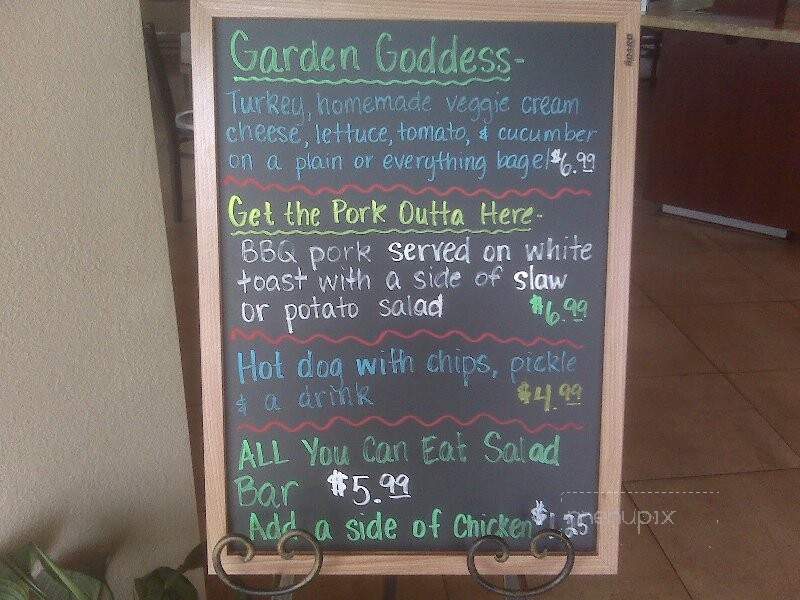 Garden Goddess-
Turkey, homemade veggie cream
cheese, lettuce, tomato, & cucumber
on a plain or everything bagel $6.99
Get the Pork Outta Here-
BBQ pork served on white
toast with a side of slaw
or potato salad $6.99
Hot dog with chips, pickle
& a drink $4.99
ALL You Can Eat Salad
Bar $5.99
Add a side of Chicken $1.25
menupix